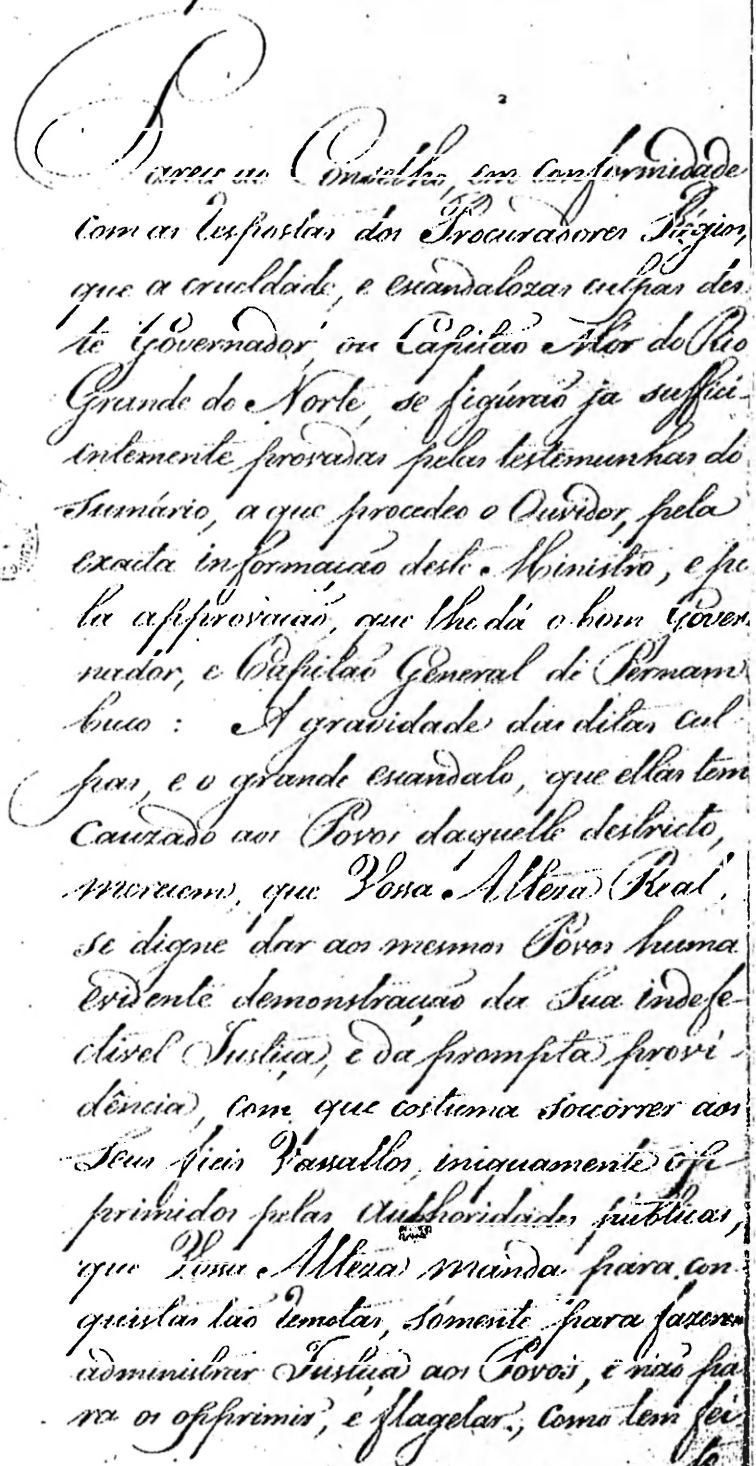 Pareceo ao Conselho, em conformidade
com as respostas dos Procuradores Régios,
que a crueldade, e escandalozas culpas des
te Governador, ou Capitão Mór do Rio
Grande do Norte, se figúrão ja suffici-
entemente provadas pelas testemunhas do
Sumário, a que procedeo o Ouvidor, pela
exacta informação deste Ministro, e pe
la approvação, que lhe dá o bom Gover
nador, e Capitão General de Pernam
buco : A gravidade das ditas cul
pas, e o grande escandalo, que ellas tem
cauzado aos Povos daquelle destricto,
merecem, que Vossa Alteza Real,
se digne dar aos mesmos Povos huma
evidente demonstração da Sua indefe-
ctivel Justiça, e da prompta provi-
dência, com que costuma soccorrer aos
Seus fieis Vassallos, iniquamente op-
primidos pelas Authoridades públicas,
que Vossa Alteza manda para con-
quistas tão remotas, sómente para fazerem
administrar Justiça aos Povos, e não pa
ra os opprimir, e flagelar, como tem fei